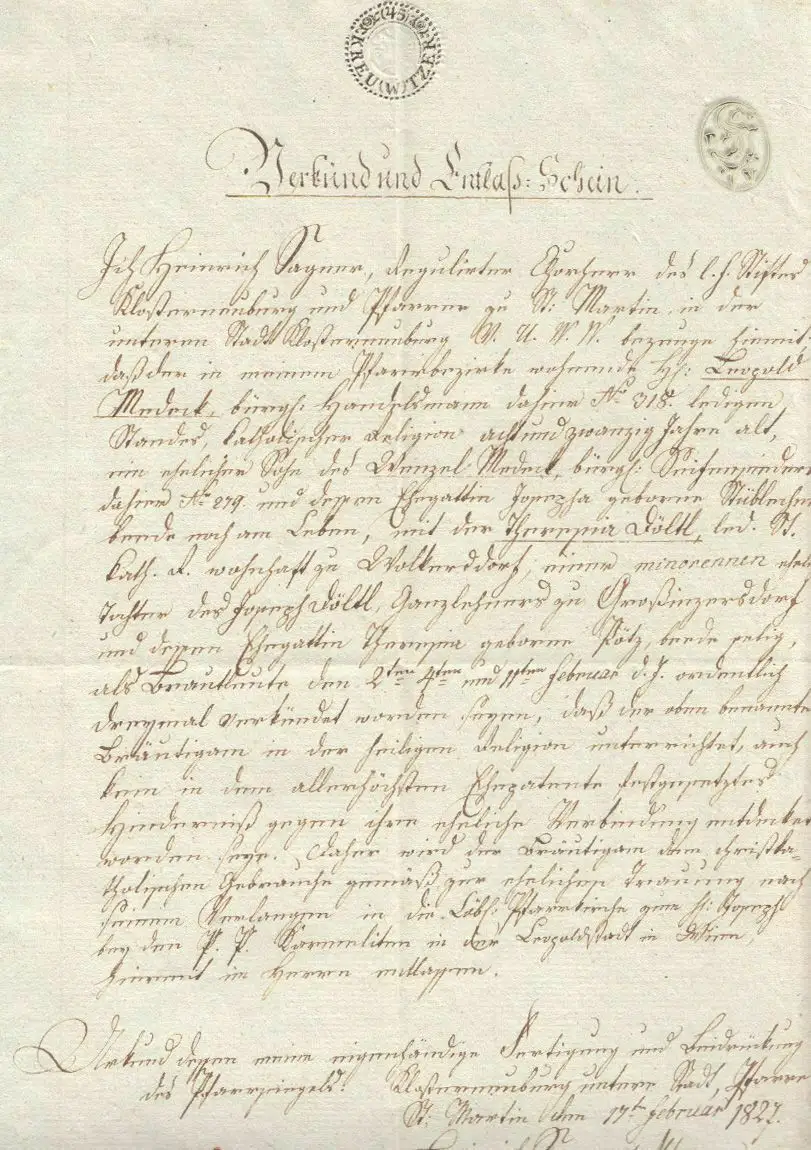 (45) KREU(W)TZER
Verkünd und Entlaß: Schein.
Ich Heinrich Sagner, Regulirter Chorherr des l. f. Stiftes
Klosterneuburg und Pfarrer zu St: Martin in der
unteren Stadt Klosterneuburg V. U. W. W. bezeuge hiemit
daß der in meinem Pfarrbezirke wohnende H: Leopold
Medeck, bürgl: Handelsmann dahier No 318. ledigen
Standes, katholischer Religion acht und zwanzig Jahre alt,
ein ehelicher Sohn des Wenzel Medeck, bürgl: Seifensieders
dahier No 279. und dessen Ehegattin Josepha geborne
beede noch am Leben, mit der Theresia Döltl, led. St.
kath. R. wohnhaft zu Wolkersdorf, einer minorennen ehel
Tochter des Joseph Döltl, Ganzlehners zu Großinzersdorf
und dessen Ehegattin Theresia geborne Pötz, beede selig,
als Brautleute den 2ten 4ten und 11ten Februar d. J. ordentlich
dreymal verkündet worden seyen, daß der oben benannte
Bräutigam in der heiligen Religion unterrichtet, auch
kein in dem allerhöchsten Ehepatente festgesetztes
Hinderniß gegen ihre eheliche Verbindung entdecket
worden seye. Daher wird der Bräutigam dem christka-
tholischen Gebrauche gemäß zur ehelichen Trauung nach
seinem Verlangen in die Löbl: Pfarrkirche zum h: Joseph
bey den P. P. Karmeliten in der Leopoldstadt in Wien,
hiermit im Herrn entlassen.
Urkund dessen meine eigenhändige Fertigung und Beidrückung
des Pfarrsiegels. Klosterneuburg untere Stadt, Pfarre
St: Martin den 17ten Februar 1827.